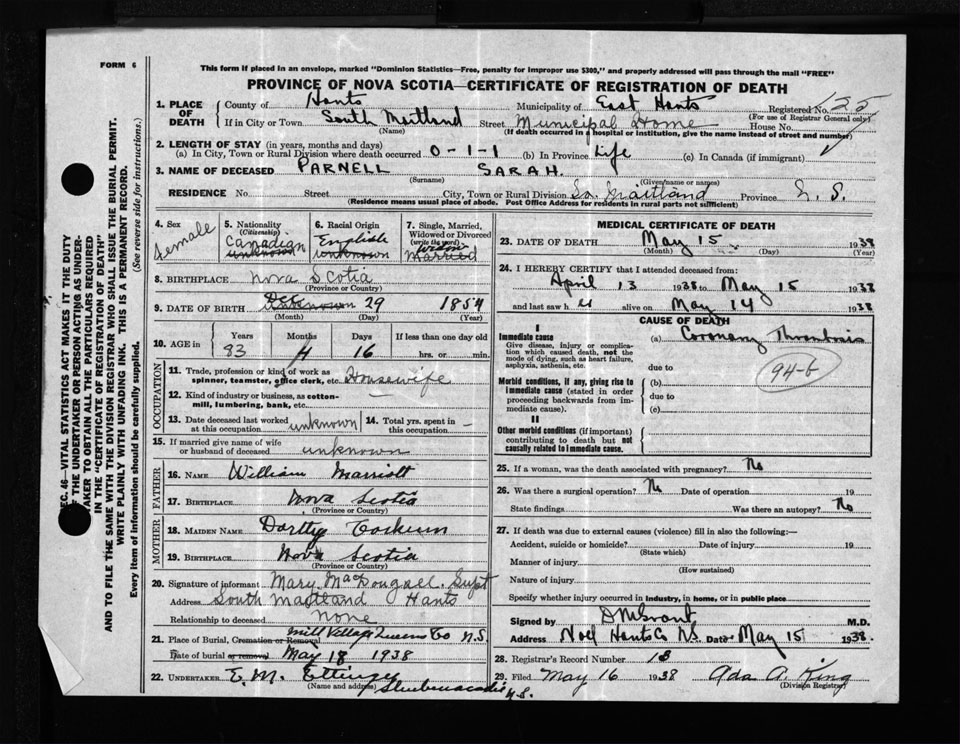 FORM 6
This form if placed in an envelope, marked "Dominion Statistics—Free, penalty for improper use $300," and properly addressed will pass through the mail "FREE"
PROVINCE OF NOVA SCOTIA—CERTIFICATE OF REGISTRATION OF DEATH
1. PLACE OF DEATH County of Hants Municipality of East Hants Registered No. 125
(For use of Registrar General only)
If in City or Town South Maitland Street Municipal Home House No.
(Name) (If death occurred in a hospital or institution, give the name instead of street and number)
2. LENGTH OF STAY (in years, months and days)
(a) In City, Town or Rural Division where death occurred 0-1-1 (b) In Province Life (c) In Canada (if immigrant)
3. NAME OF DECEASED PARNELL SARAH.
(Surname) (Given name or names)
RESIDENCE No. Street City, Town or Rural Division So. Maitland Province N. S.
(Residence means usual place of abode. Post Office Address for residents in rural parts not sufficient)
4. Sex Female
5. Nationality (Citizenship) Canadian unknown
6. Racial Origin English unknown
7. Single, Married, Widowed or Divorced (write the word) Married
8. BIRTHPLACE Nova Scotia
(Province or Country)
9. DATE OF BIRTH Dec unknown 29 1854
(Month) (Day) (Year)
10. AGE in Years Months Days If less than one day old
83 4 16 hrs. or min.
OCCUPATION
11. Trade, profession or kind of work as spinner, teamster, office clerk, etc. Housewife
12. Kind of industry or business, as cotton-mill, lumbering, bank, etc.
13. Date deceased last worked at this occupation unknown 14. Total yrs. spent in this occupation —
15. If married give name of wife or husband of deceased unknown
FATHER
16. NAME William Marriott
17. BIRTHPLACE Nova Scotia
(Province or Country)
MOTHER
18. MAIDEN NAME Dorithy
19. BIRTHPLACE Nova Scotia
(Province or Country)
20. Signature of informant Mary MacDougall. Supt
Address South Maitland Hants
Relationship to deceased none
21. Place of Burial, Cremation or Removal Mill Village Queens Co N.S.
Date of burial or removal May 18 1938
22. UNDERTAKER E. M. Ettinger
(Name and address) Shubenacadie N.S.
MEDICAL CERTIFICATE OF DEATH
23. DATE OF DEATH May 15 1938
(Month) (Day) (Year)
24. I HEREBY CERTIFY that I attended deceased from:
April 13 1938 to May 15 1938
and last saw h er alive on May 14 1938
CAUSE OF DEATH
I
Immediate cause (a) Coronary Thrombosis
Give disease, injury or complication which caused death, not the mode of dying, such as heart failure, asphyxia, asthenia, etc.
due to 94-b
Morbid conditions, if any, giving rise to immediate cause (stated in order proceeding backwards from immediate cause).
(b)
due to
(c)
II
Other morbid conditions (if important) contributing to death but not causally related to immediate cause.
25. If a woman, was the death associated with pregnancy? No
26. Was there a surgical operation? No Date of operation 19
State findings Was there an autopsy? No
27. If death was due to external causes (violence) fill in also the following:—
Accident, suicide or homicide? Date of injury 19
(State which)
Manner of injury
(How sustained)
Nature of injury
Specify whether injury occurred in industry, in home, or in public place
Signed by D M Grant M.D.
Address Noel Hants Co N.S. Date May 15 1938.
28. Registrar's Record Number 13
29. Filed May 16 1938 Ada A. King
(Division Registrar)
SEC. 46—VITAL STATISTICS ACT MAKES IT THE DUTY
OF THE UNDERTAKER OR PERSON ACTING AS UNDER-
TAKER TO OBTAIN ALL THE PARTICULARS REQUIRED
IN THE "CERTIFICATE OF REGISTRATION OF DEATH"
AND TO FILE THE SAME WITH THE DIVISION REGISTRAR WHO SHALL ISSUE THE BURIAL PERMIT.
WRITE PLAINLY WITH UNFADING INK. THIS IS A PERMANENT RECORD.
Every item of information should be carefully supplied. (See reverse side for instructions.)